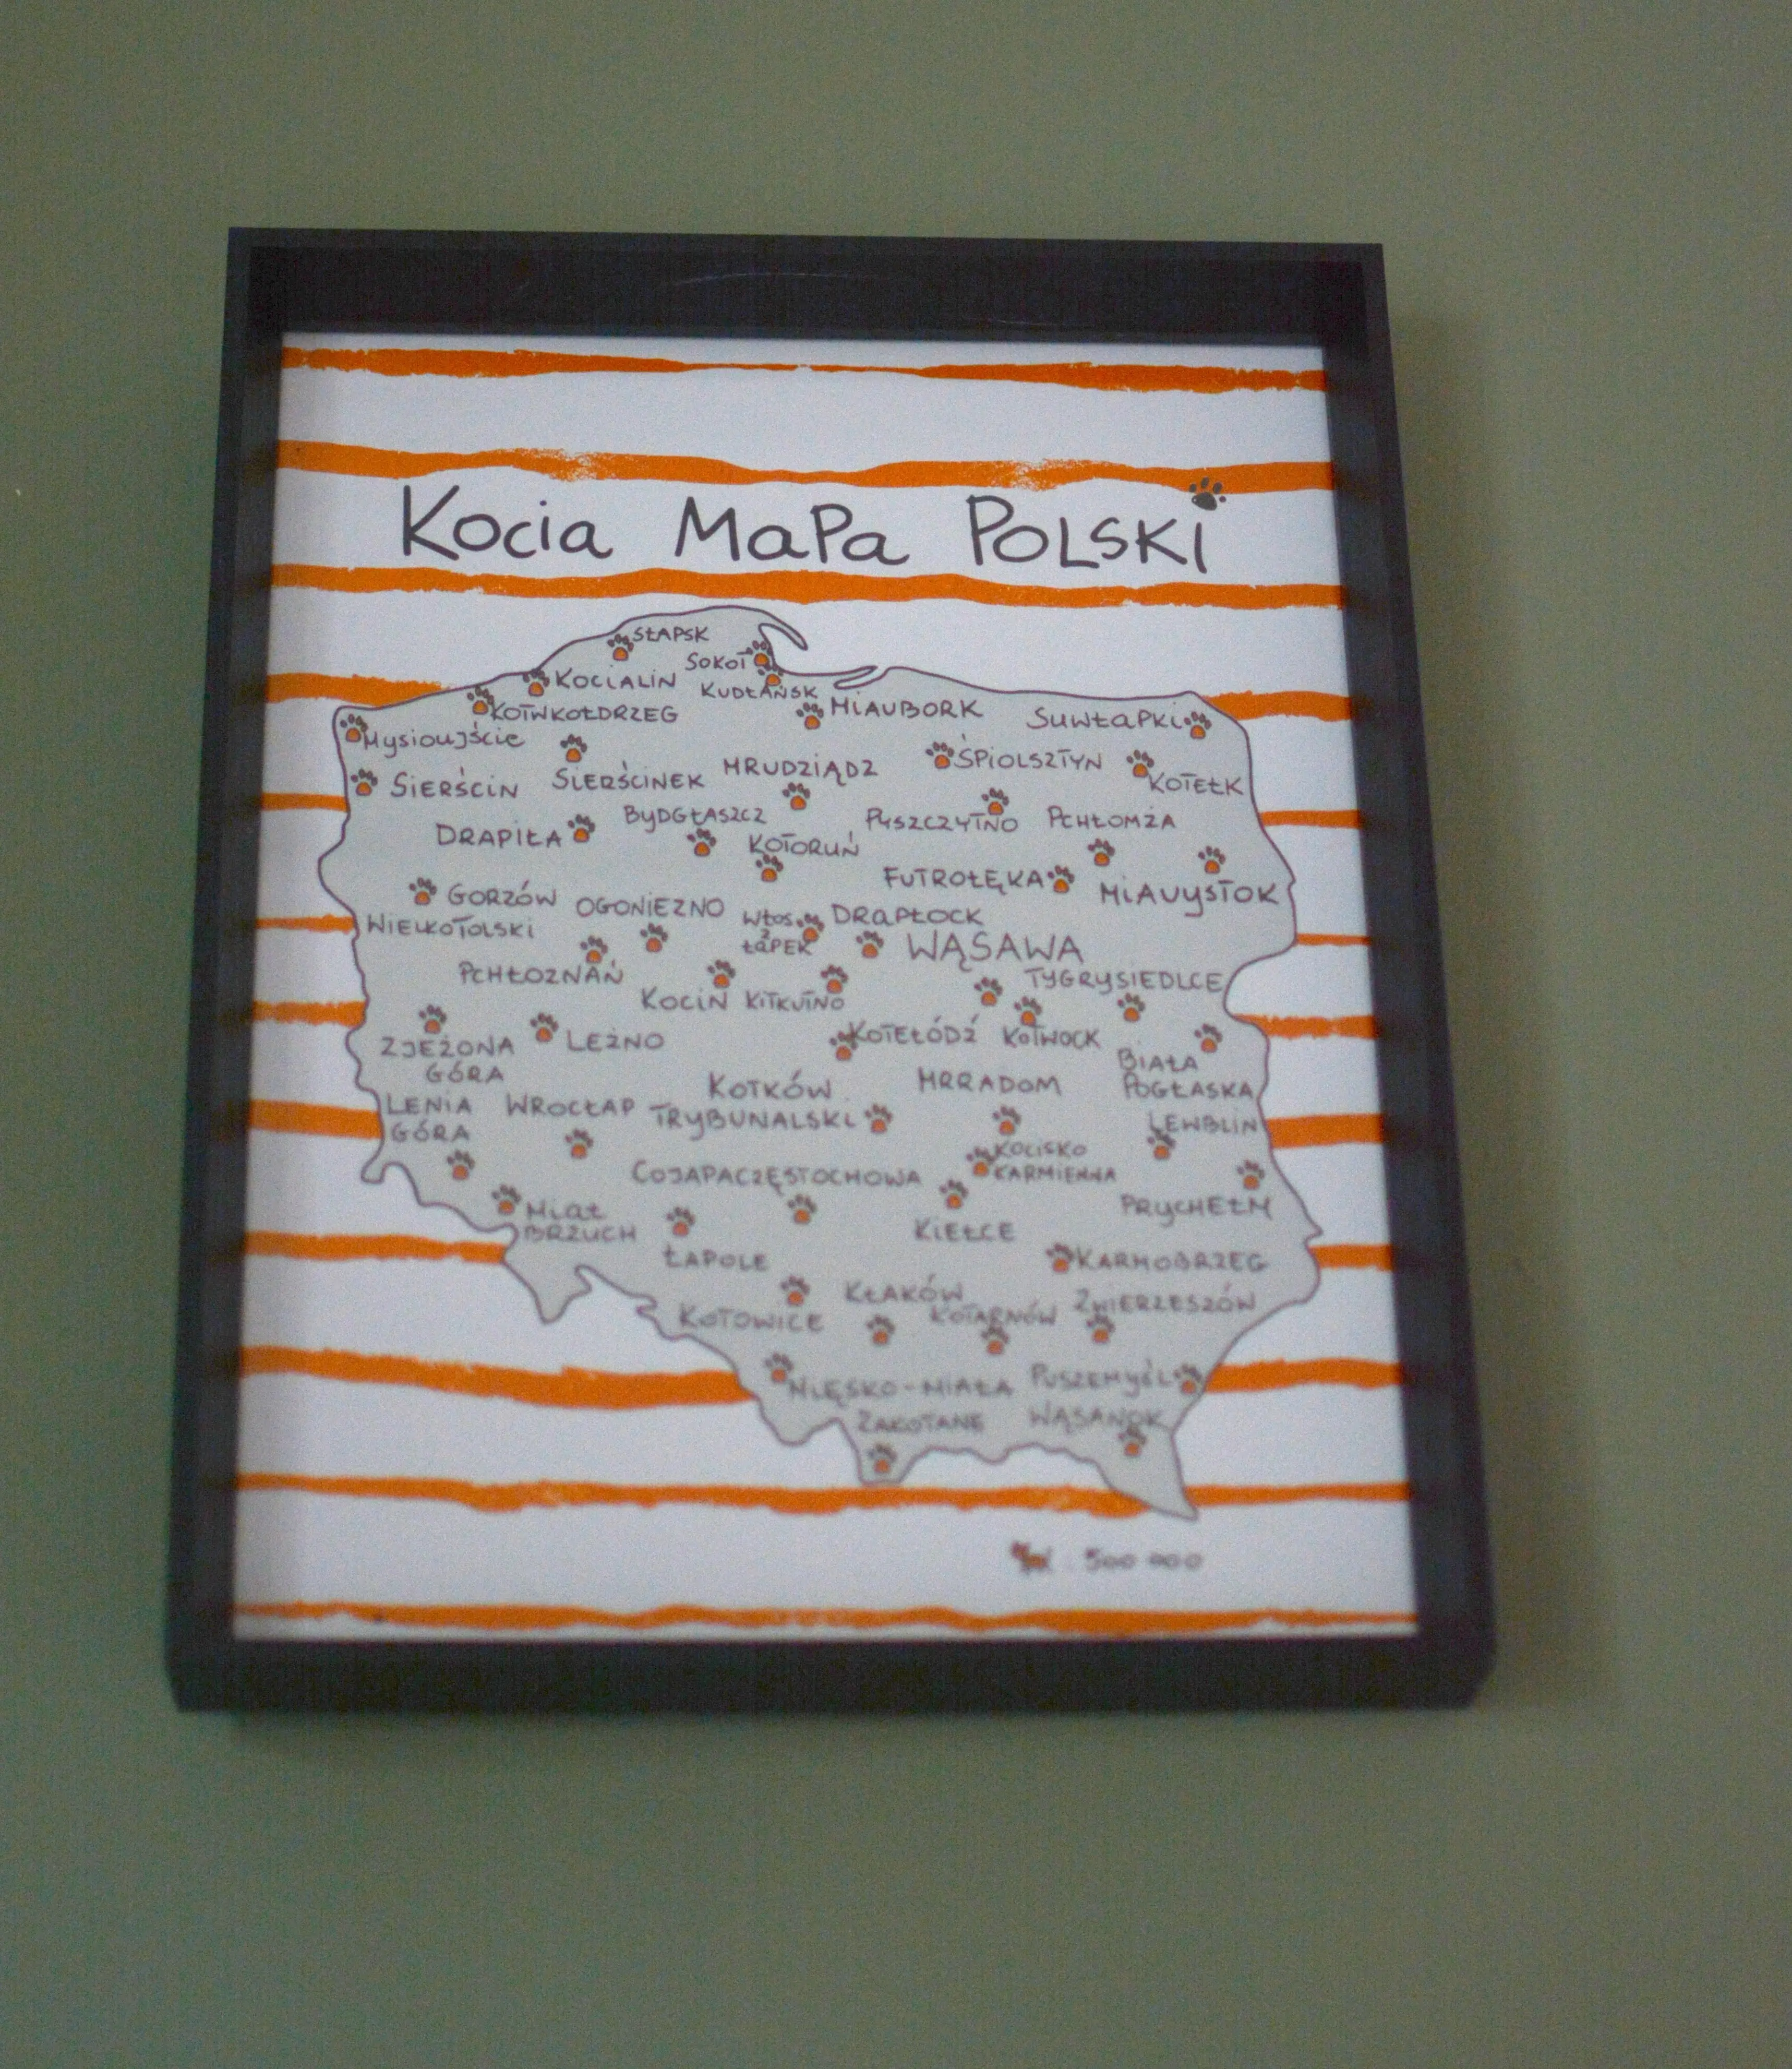 Kocia MaPa POLSKi
SŁAPSK
SOKOT
KOCIALIN
KUDŁAŃSK
KOTWKOŁDRZEG
MIAUBORK
SUWŁAPKI
Mysioujście
ŚPIOLSZTYN
MRUDZIĄDZ
SIERŚCIN
SIERŚCINEK
KOTEŁK
BYDGŁASZCZ
PYSZCZYTNO
PCHŁOMŻA
DRAPIŁA
KOTORUŃ
FUTROŁĘKA
MIAUYSTOK
GORZÓW
WIELKOTOLSKI
OGONIEZNO
WŁOS
Z
ŁAPEK
DRAPŁOCK
WĄSAWA
PCHŁOZNAŃ
TYGRYSIEDLCE
KOCIN
KITKUTNO
ZJEŻONA
GÓRA
LEŻNO
KOTEŁÓDŹ
KOTWOCK
BIAŁA
POGŁASKA
KOTKÓW
TRYBUNALSKI
MRRADOM
LENIA
GÓRA
WROCŁAP
LEWBLIN
KOCISKO
KARMIENNA
COJAPACZĘSTOCHOWA
PRYCHEŁM
MIAŁ
BRZUCH
KIEŁCE
ŁAPOLE
KARMOBRZEG
KŁAKÓW
KOTARNÓW
ZWIERZESZÓW
KOTOWICE
NIĘSKO-MIAŁA
PUSZEMYŚL
ZAKOTANE
WĄSANOK
500 000